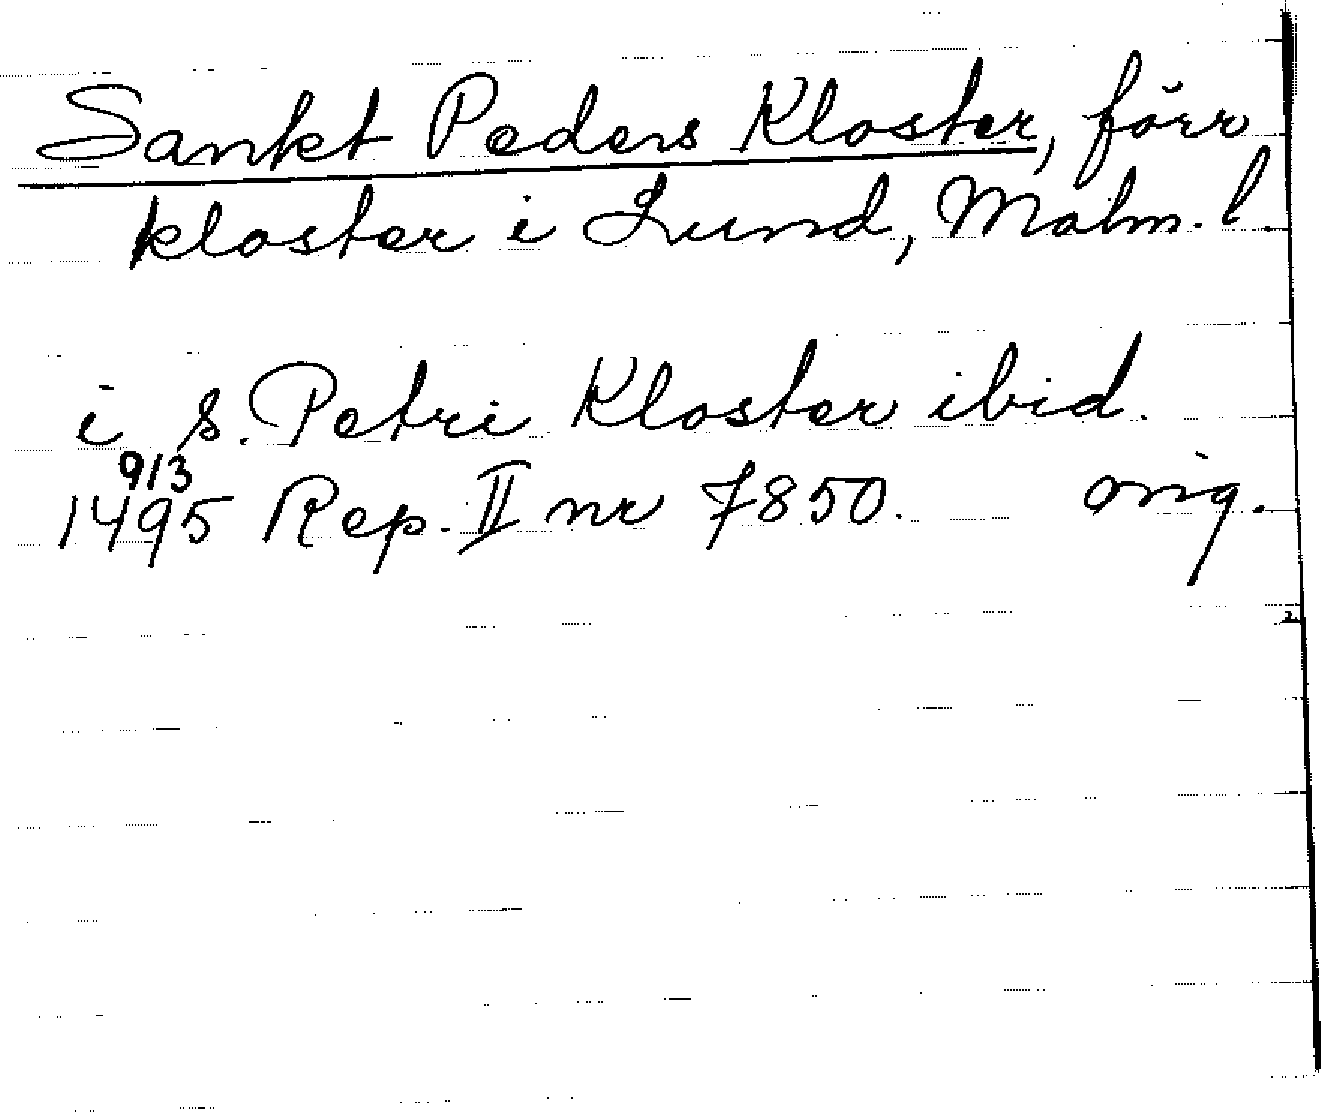 Sankt Peders Kloster, förr
kloster i Lund, Malm. l.
i s. Petri Kloster ibid.
9/3
1495 Rep. II nr 7850. orig.